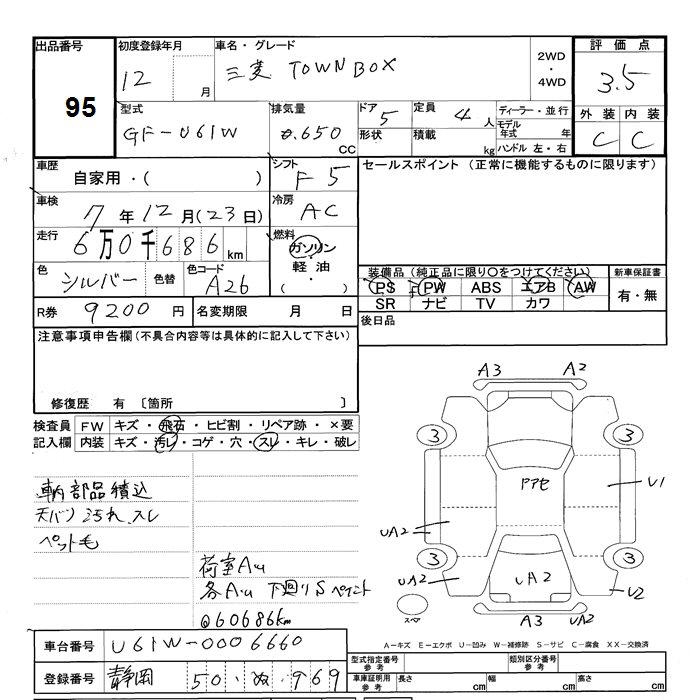 出品番号
95
初度登録年月
12 月
車名・グレード
三菱 TOWN BOX
2WD
・
4WD
評価点
3.5
型式
GF-U61W
排気量
0.650
CC
ドア
5
形状
定員
4 人
積載
kg
ディーラー・並行
モデル年式 年
ハンドル 左・右
外装 内装
C C
車歴
自家用・( )
シフト
F5
セールスポイント (正常に機能するものに限ります)
車検
7年12月(23日)
冷房
AC
走行
6万0千686km
燃料
ガソリン
・
軽油
・
( )
色
シルバー
色替
色コード
A26
装備品(純正品に限り○をつけてください)
PS PW ABS エアB AW
SR ナビ TV カワ
新車保証書
有・無
R券 9200円
名変期限 月 日
後日品
注意事項申告欄(不具合内容等は具体的に記入して下さい)
修復歴 有 〔箇所 〕
検査員
記入欄
FW キズ・飛石・ヒビ割・リペア跡・×要
内装 キズ・汚レ・コゲ・穴・スレ・キレ・破レ
車内部品積込
天バリ汚れ、スレ
ペット毛
荷室Aω
各Aω 下廻りSペイント
@60686km
A3 A2
3 3
ドアセ
U1
UA2
3 3
UA2 UA2 U2
スペア
A3 UA2
A-キズ E-エクボ U-凹み W-補修跡 S-サビ C-腐食 XX-交換済
車台番号 U61W-0006660
登録番号 静岡 50 ぬ 969
型式指定番号
参考
類別区分番号
参考
車庫証明用
参考
長さ cm
幅 cm
高さ cm